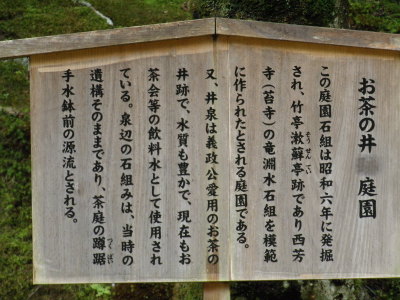 お茶の井 庭園
この庭園石組は昭和六年に発掘
され、竹亭漱蘇亭跡であり西芳
寺（苔寺）の竜淵水石組を模範
に作られたとされる庭園である。
又、井泉は義政公愛用のお茶の
井跡で、水質も豊かで、現在もお
茶会等の飲料水として使用され
ている。泉辺の石組みは、当時の
遺構そのままであり、茶庭の蹲踞
手水鉢前の源流とされる。